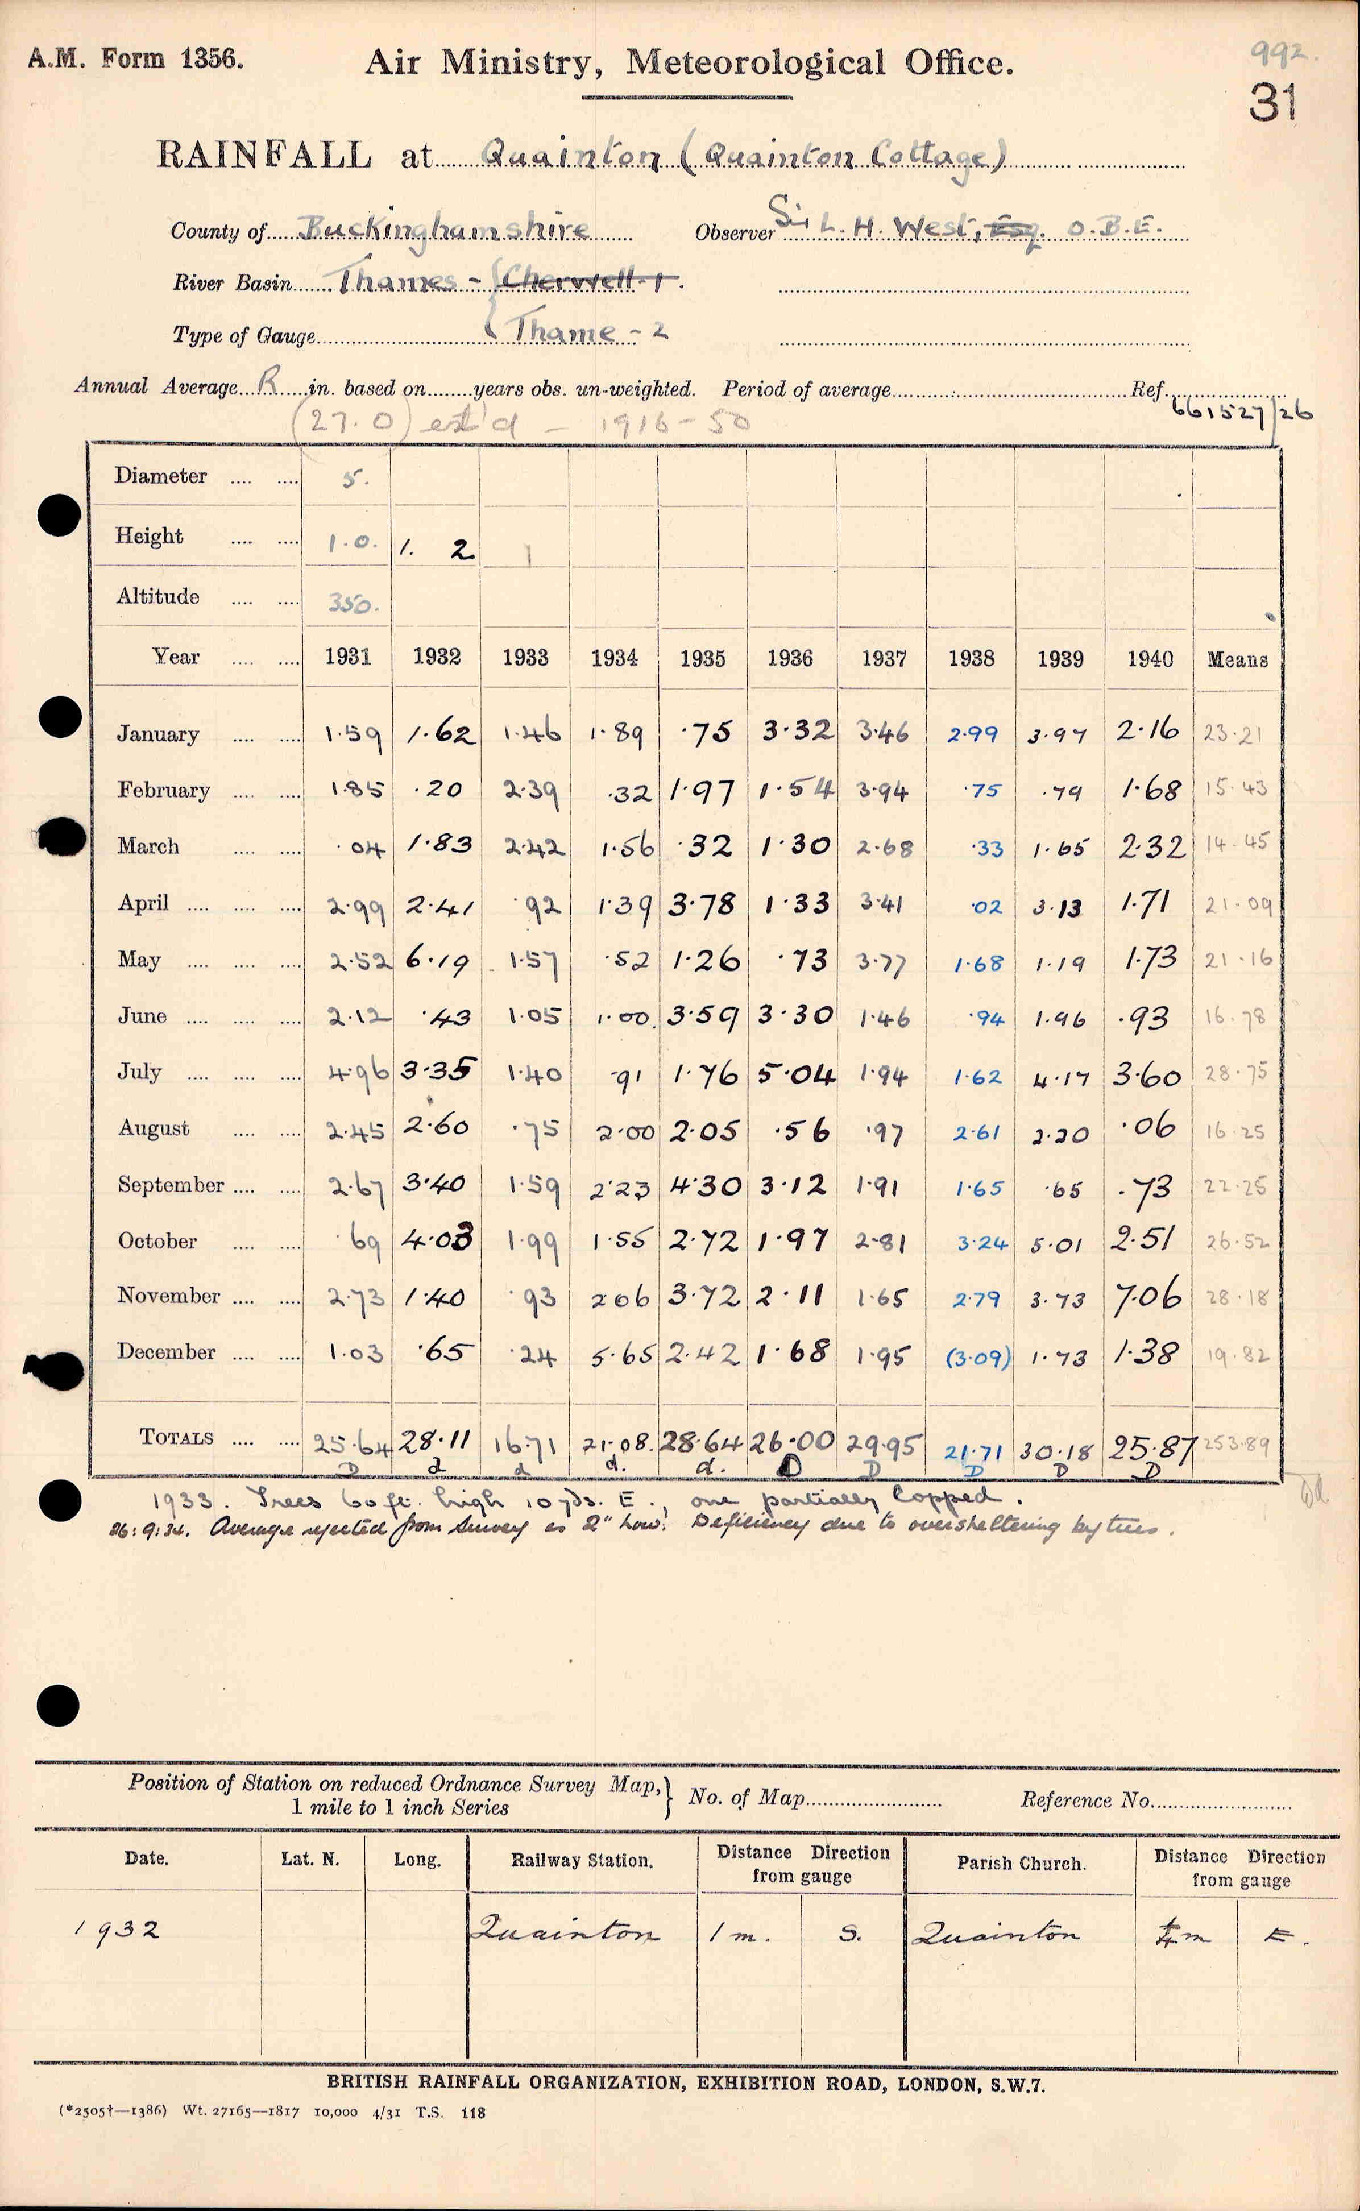 992.
A.M. Form 1356. Air Ministry, Meteorological Office.
31
RAINFALL at Quainton (Quainton Cottage)
County of Buckinghamshire Observer Sir L. H. West, Esq. O.B.E.
River Basin Thames - { Cherwell-1.
Type of Gauge { Thame - 2
Annual Average R in. based on years obs. un-weighted. Period of average Ref. 661527/26
(27.0) est'd - 1916-50
Diameter 5.
Height 1.0. 1. 2 1
Altitude 350.
Year 1931 1932 1933 1934 1935 1936 1937 1938 1939 1940 Means
January 1.59 1.62 1.46 1.89 .75 3.32 3.46 2.99 3.97 2.16 23.21
February 1.85 .20 2.39 .32 1.97 1.54 3.94 .75 .79 1.68 15.43
March .04 1.83 2.42 1.56 .32 1.30 2.68 .33 1.65 2.32 14.45
April 2.99 2.41 .92 1.39 3.78 1.33 3.41 .02 3.13 1.71 21.09
May 2.52 6.19 1.57 .52 1.26 .73 3.77 1.68 1.19 1.73 21.16
June 2.12 .43 1.05 1.00 3.59 3.30 1.46 .94 1.96 .93 16.78
July 4.96 3.35 1.40 .91 1.76 5.04 1.94 1.62 4.17 3.60 28.75
August 2.45 2.60 .75 2.00 2.05 .56 .97 2.61 2.20 .06 16.25
September 2.67 3.40 1.59 2.23 4.30 3.12 1.91 1.65 .65 .73 22.25
October .69 4.03 1.99 1.55 2.72 1.97 2.81 3.24 5.01 2.51 26.52
November 2.73 1.40 .93 2.06 3.72 2.11 1.65 2.79 3.73 7.06 28.18
December 1.03 .65 .24 5.65 2.42 1.68 1.95 (3.09) 1.73 1.38 19.82
TOTALS 25.64 28.11 16.71 21.08. 28.64 26.00 29.95 21.71 30.18 25.87 253.89
D d d d. d. D D D D D
1933. Trees 60 ft. high 10 yds. E., one partially lopped.
26:9:34. Average rejected from Survey as 2" low. Deficiency due to oversheltering by trees.
Position of Station on reduced Ordnance Survey Map, } No. of Map Reference No.
1 mile to 1 inch Series
Date. Lat. N. Long. Railway Station. Distance Direction from gauge Parish Church. Distance Direction from gauge
1932 Quainton 1 m. S. Quainton ¼ m E.
BRITISH RAINFALL ORGANIZATION, EXHIBITION ROAD, LONDON, S.W.7.
(*2505†—1386) Wt. 27165—1817 10,000 4/31 T.S. 118